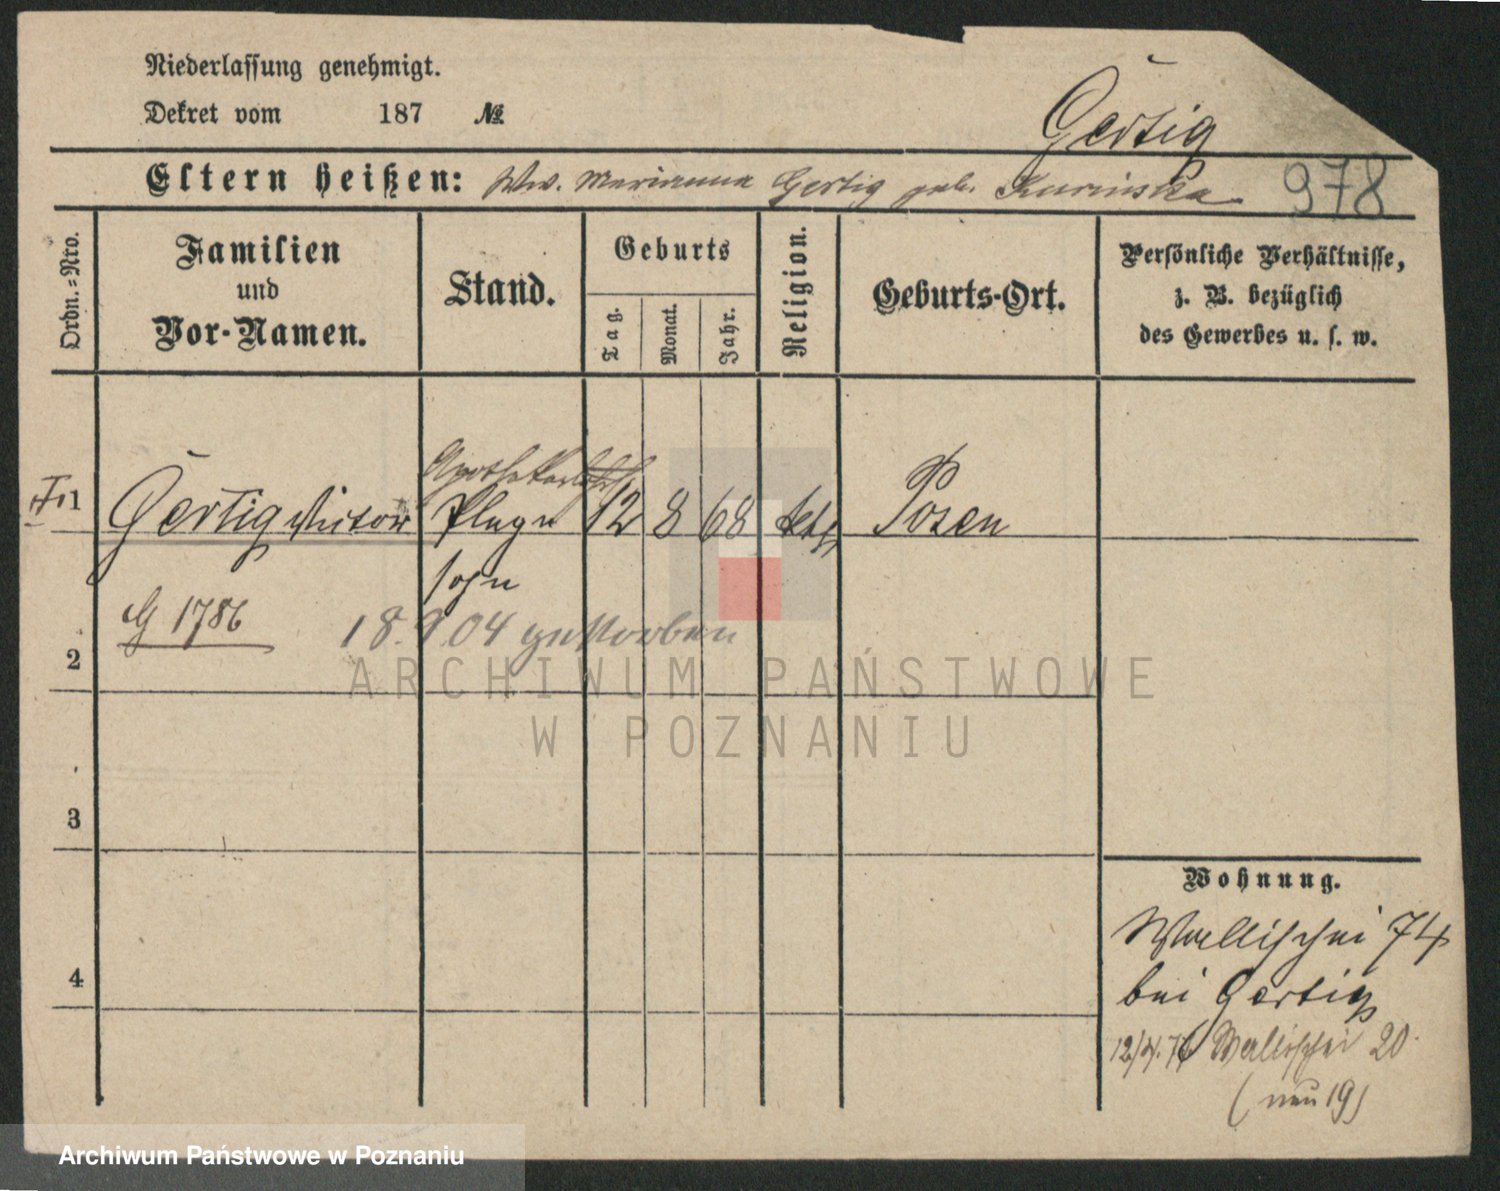 Niederlassung genehmigt.
Dekret vom 187 №
Gertig
Eltern heißen: Ww. Marianna Gertig geb. Kurinska
978
Ordn.-Nro.
Familien und Vor-Namen.
Stand.
Geburts
Tag.
Monat.
Jahr.
Religion.
Geburts-Ort.
Persönliche Verhältnisse, z. B. bezüglich des Gewerbes u. s. w.
1
Gertig Victor
Pflege
12 8 68 kath
Posen
sohn
G 1786
18. 9 04 gestorben
2
3
4
Wohnung.
Wallischei 74
bei Gertig
Wallischei 20.
(neu 19)
ARCHIWUM PAŃSTWOWE
W POZNANIU
Archiwum Państwowe w Poznaniu